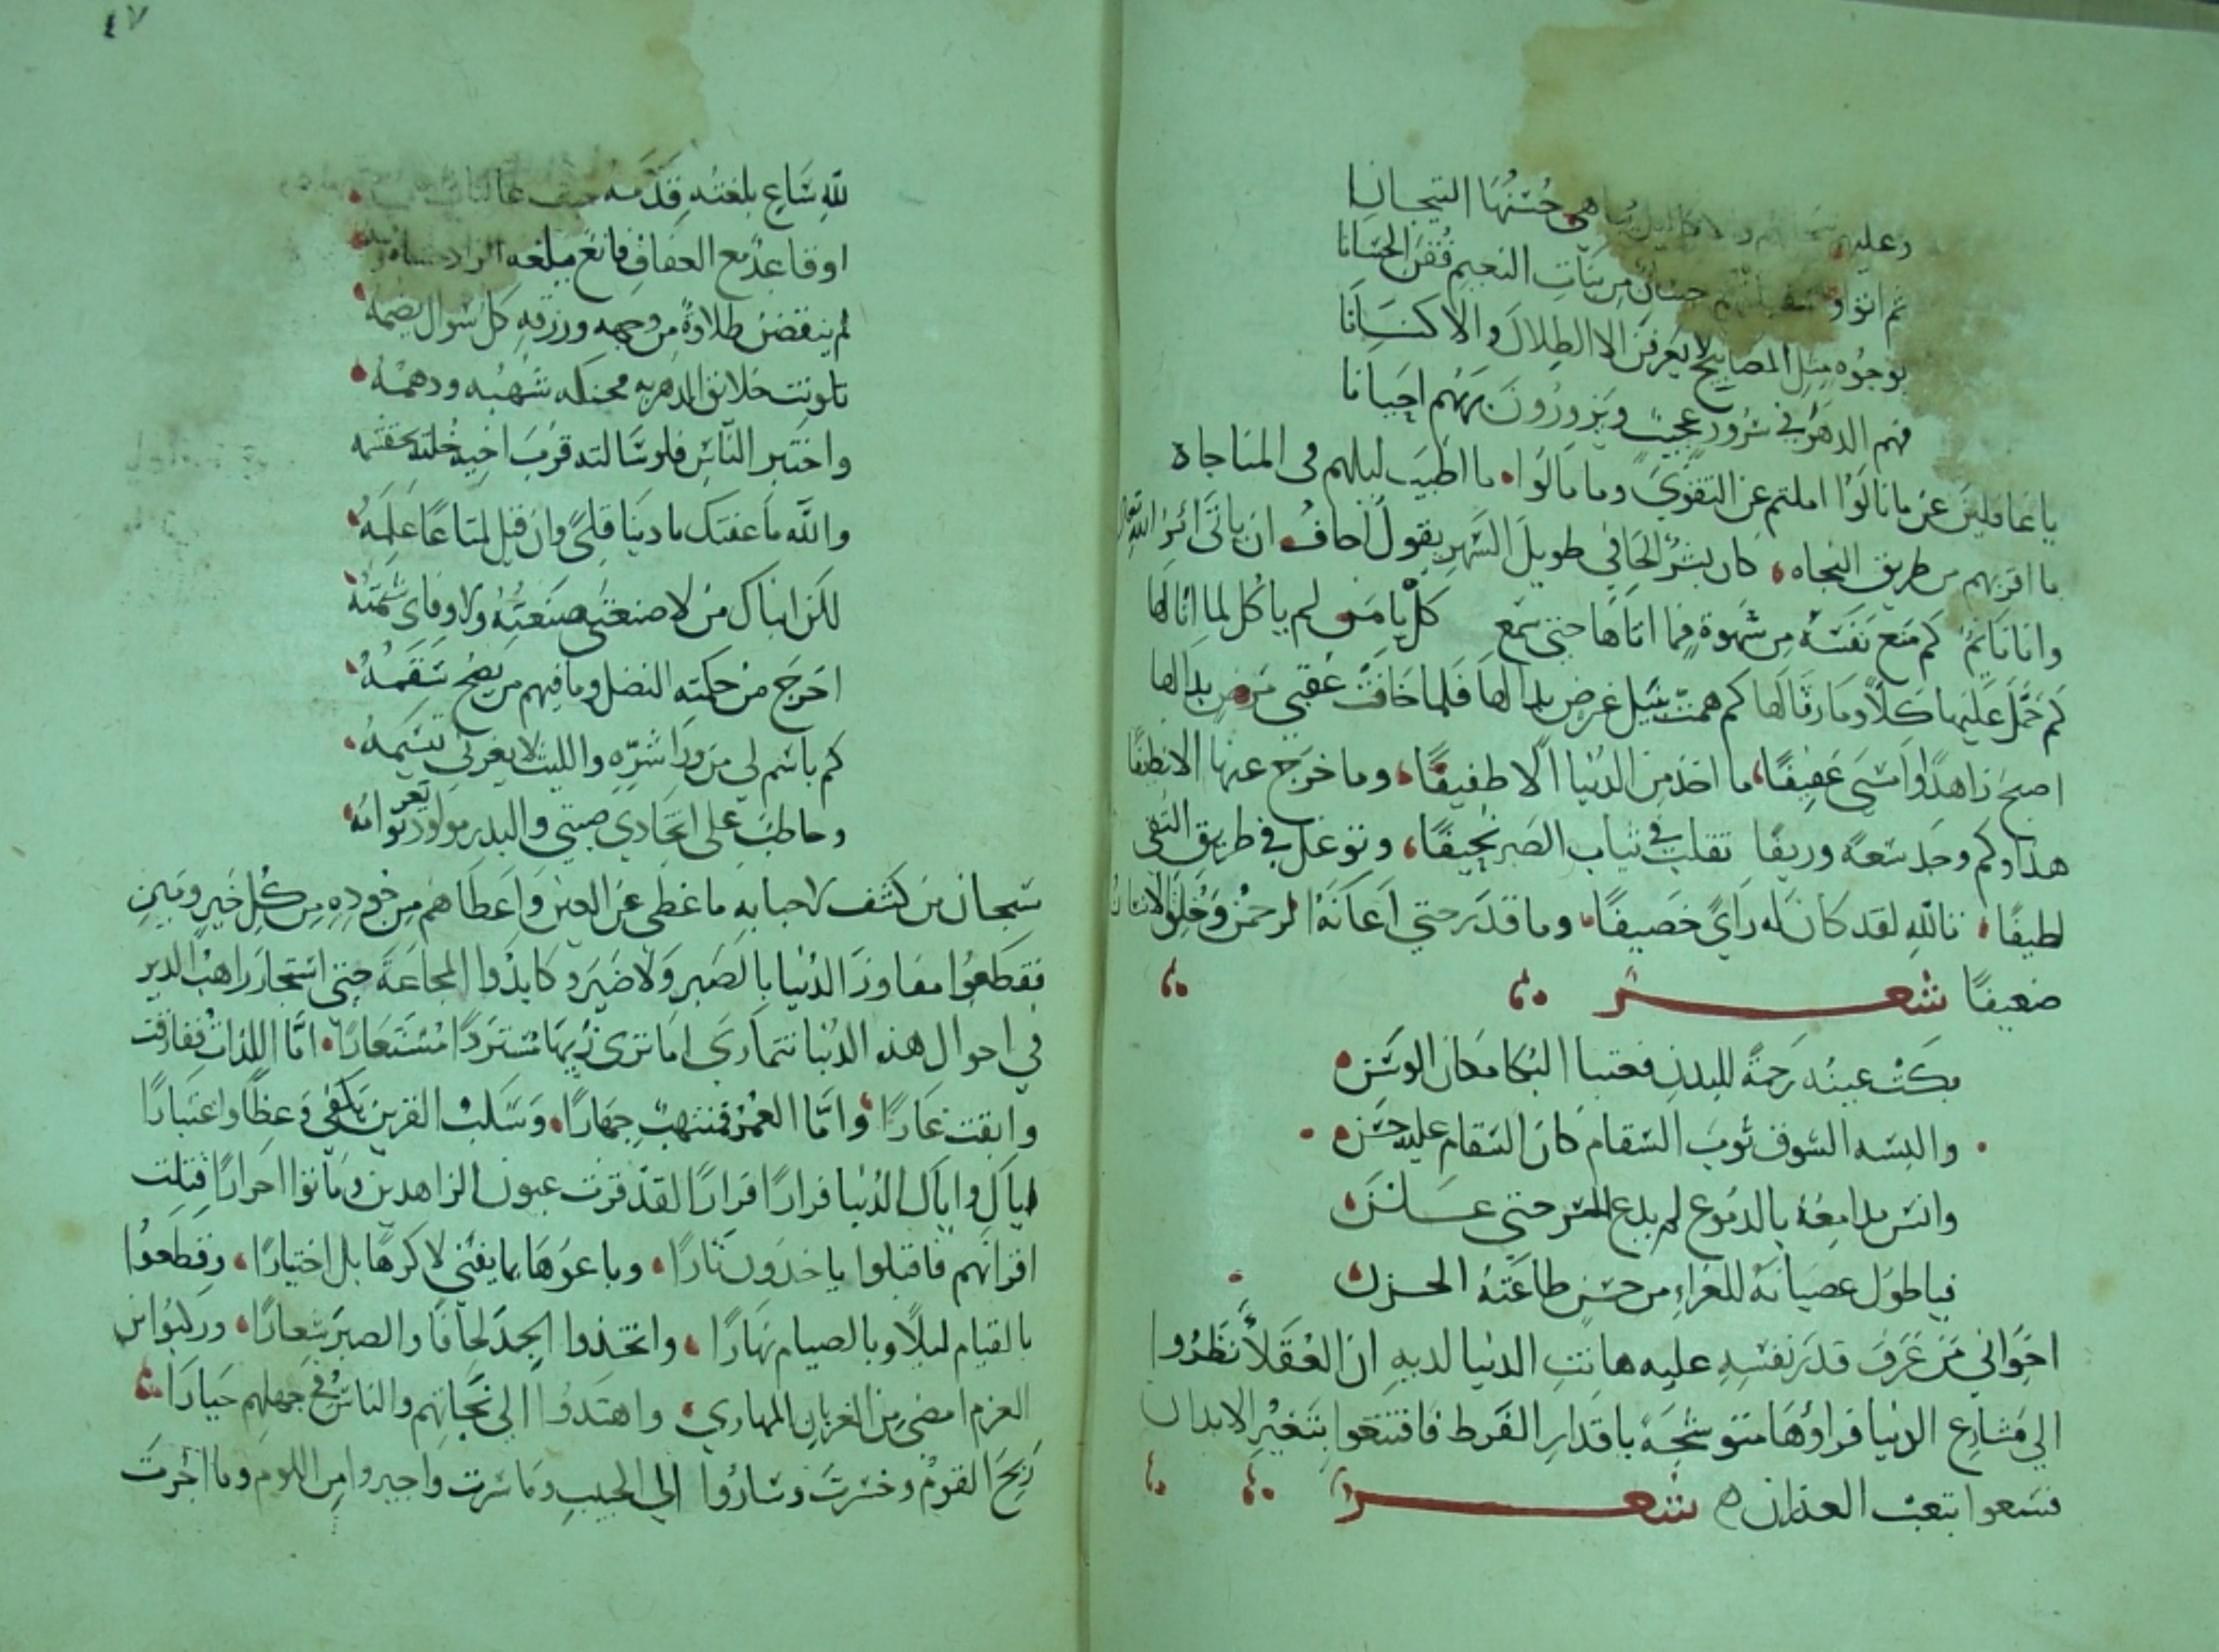 وعليهم تيجانهم هي حسنها التيجانا
ثم اتوا حسان من بنات النعيم فقن الحسانا
بوجوه مثل المصابيح لا يعرفن الا الظلال والاكنانا
فهم الدهر في سرور عجيب ويزورون ربهم احيانا
يا غافلين عن ما نالوا املتم عن التقوى وما مالوا ما اطيب ليلهم في المناجاة
ما اقربهم من طريق النجاه كان بشر الحافي طويل السهر يقول اخاف ان ياتي امر الله تعالى
وانا نائم كم منع نفسه من شهوة فما اتاها حتى سمع كل يا من لم ياكل لما انالها
كم حمل عليها كلا وما رثا لها كم همت بنيل غرض بدا لها فلما خافت عقبى مرض بدا لها
اصبح زاهدا وامسى عفيفا ما اخذ من الدنيا الا طفيفا وما خرج عنها الا نظيفا
هذا وكم وجد سعة وريفا تقلب في ثياب الصبر نحيفا وتوغل في طريق التقى
لطيفا تالله لقد كان له راي خصيفا وما قدر حتى اعانه الرحمن وخلق الانسان
ضعيفا شعر
بكت عينه رحمة للبدن فحتبا البكا مكان الوسن
والبسه الشوق ثوب السقام كان السقام عليه حسن
وانس مدامعه بالدموع لم يدع السر حتى علن
فيا طول عصيانه للعزاء من حسن طاعته الحزن
اخواني من عرف قدر نفسه عليه هانت الدنيا لديه ان العقلا نظروا
الي مشارع الدنيا فراؤها متوشحة باقدار الفرط فاقتنعوا بتغير الابدان
فسعوا بتعب العذران شعر
٤٧
لله ساع بلغته قدمه
او قاعد مع العفاف قانع مبلغه
لم ينقضن طلاوة من وجهه ورزقه كل سوال يصمه
تلونت خلائق الدهر به محنكه شهبه ودهمه
واختبر الناس فلو سالته قرب اخيه خلته يخنقه
والله ما عفتك يا دنيا قلى وان قيل لمتاعا علمه
لكن اباك من لا صنعتى صنعته ولا وفاى شمته
اخرج من حكمته الفضل وما فيهم من يصح سقمه
كم باسم لي من ورا شره والليث لا يغرني تبسمه
وحاطب على اتحادي صبتي والبدر مولود تعر توامه
سبحان من كشف لاحبابه ما غطى عن العين واعطاهم من جوده من كل خير ومين
فقطعوا مفاوز الدنيا بالصبر ولا ضير وكابدوا المجاعة حتى استجار راهب الدير
في احوال هذه الدنيا تتمارى اما ترى نريها مستردا مستعارا اما اللذات ففارقت
وابقت عارا واما العمر فمنتهب جهارا وسلب القرين يكفي وعظا واعتبارا
اياك واياك الدنيا فرارا فرارا لقد قرت عيون الزاهدين وماتوا احرارا قتلت
اقرانهم فاقبلوا ياخذون ثارا وباعوها بما يفنى لا كرها بل اختيارا وقطعوا
بالقيام ليلا وبالصيام نهارا واتخذوا الجد لحافا والصبر شعارا وركبوا من
العزم امضى من الغربان المهاري واهتدوا الى نجاتهم والناس في جهلهم حيارا
ربح القوم وخسرت وساروا الى الحبيب وما سرت واجيروا من اللوم وما اجرت